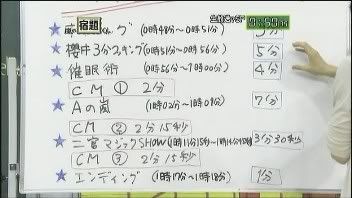 嵐の宿題くん グ (0時48分〜0時51分) 3分
生放送 01:50
櫻井3分スキング(0時51分〜0時56分) 5分
催眠術 (0時56分〜1時00分) 4分
CM ① 2分
Aの嵐 (1時02分〜1時09分) 7分
CM ② 2分15秒
二宮マジックSHOW(1時11分15秒〜1時14分45秒) 3分30秒
CM ③ 2分15秒
エンディング (1時17分〜1時18分) 1分